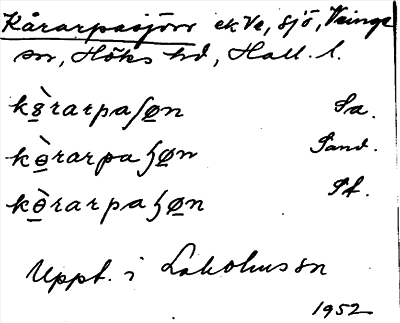 Kårarpasjön ek Va, sjö, Veinge
sn, Höks hd, Hall. l.
kè̱rarpaʃøn Sa.
kè̱rarpaɧøn Sand.
kè̱rarpaɧøn Pf.
Uppt. i Laholms sn
1952